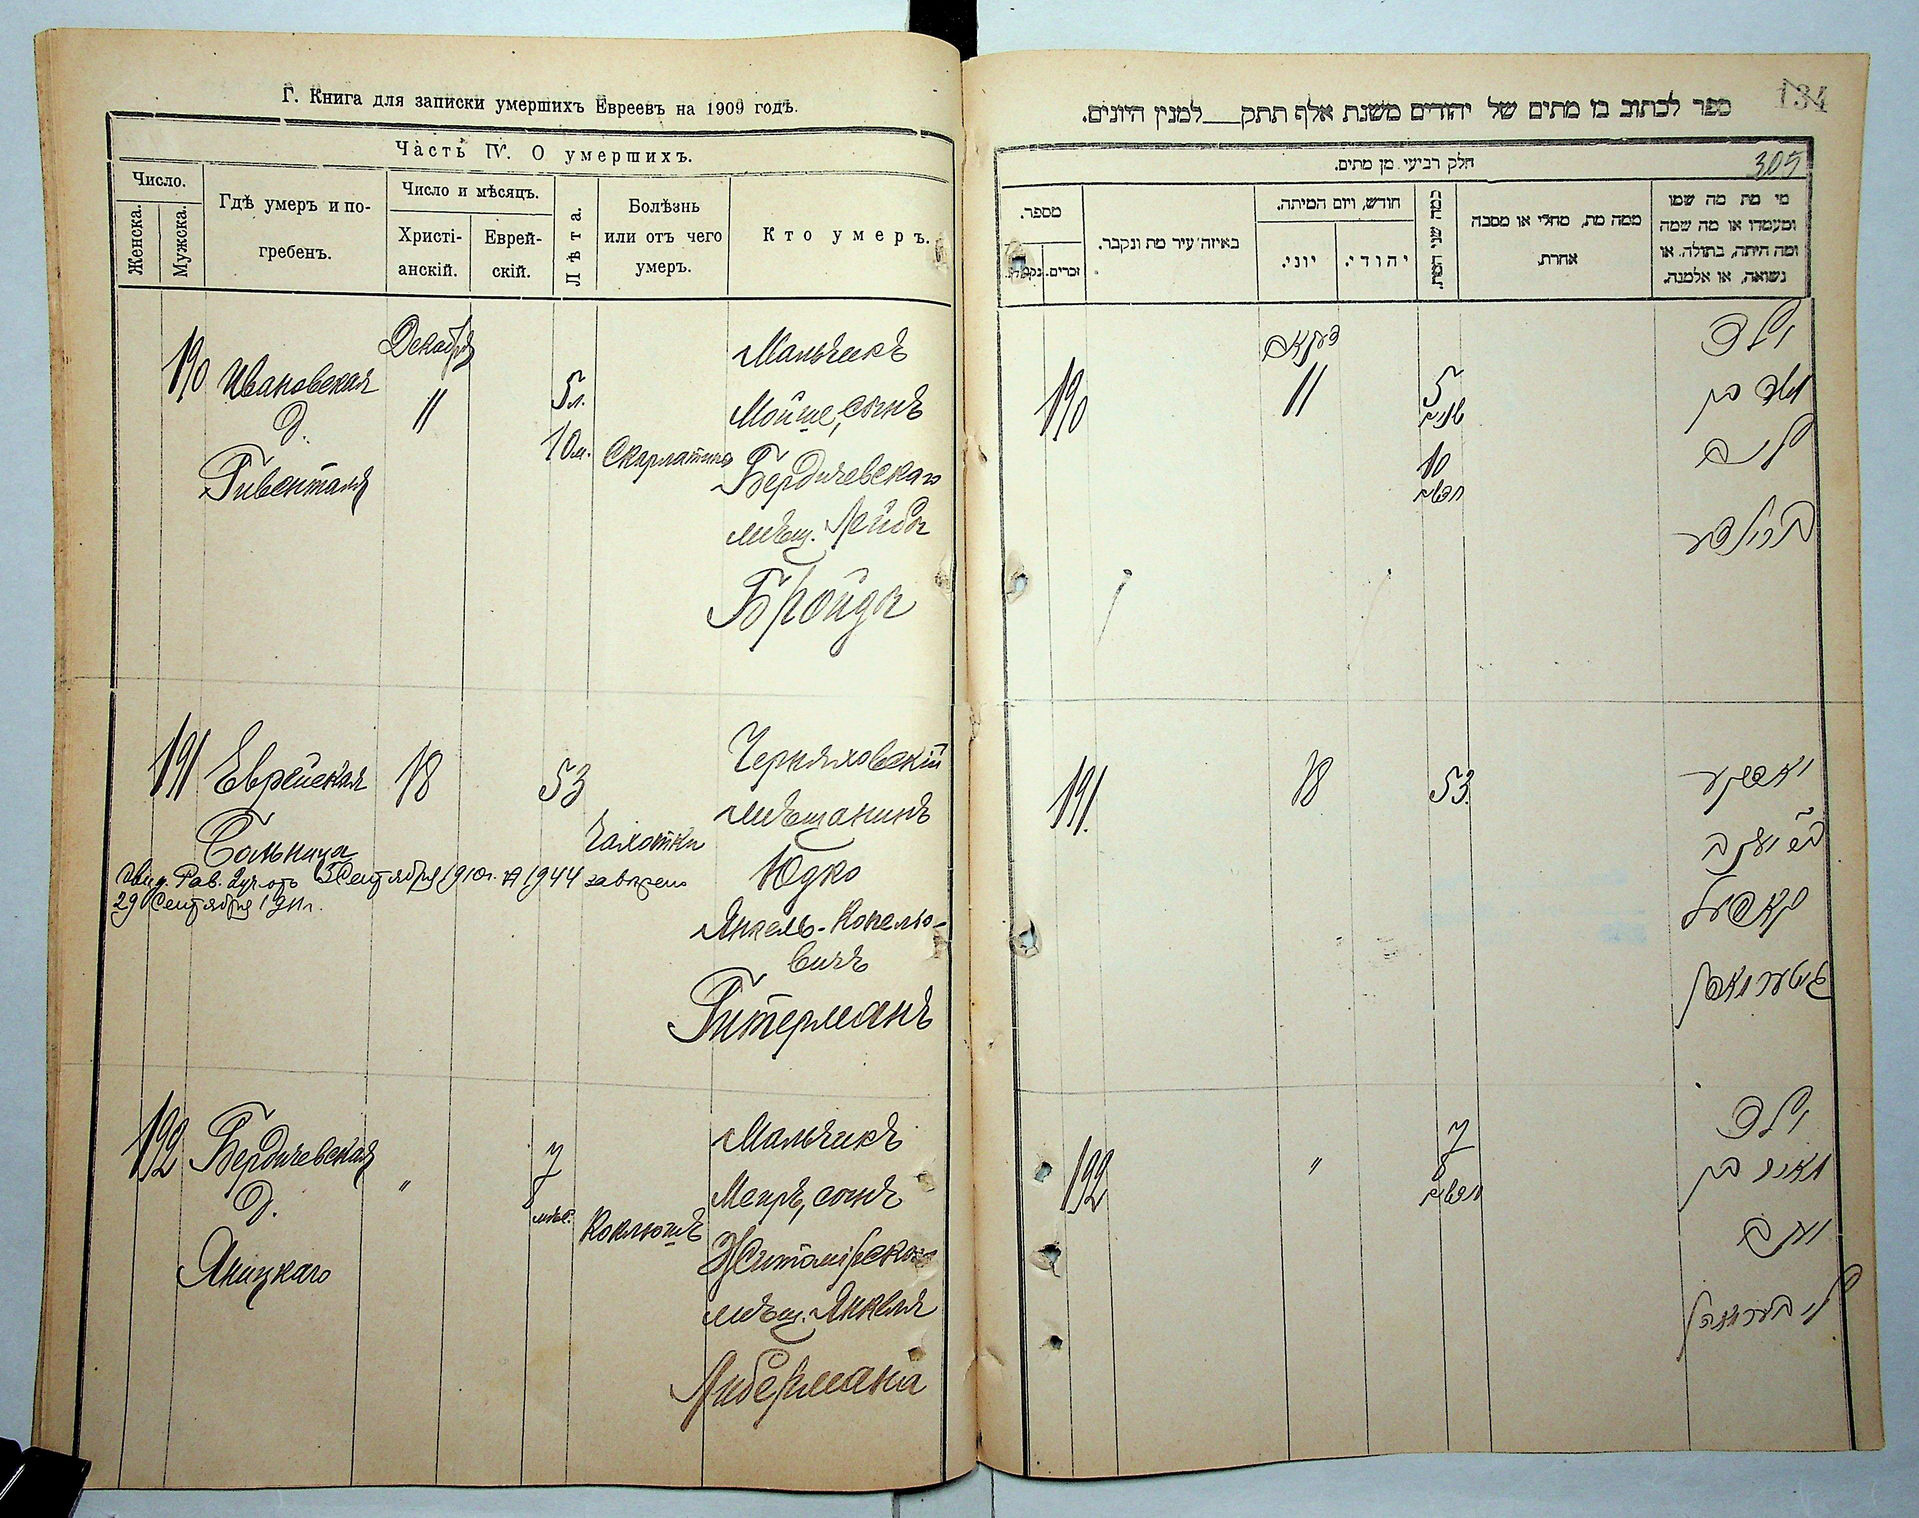 Г. Книга для записки умершихъ Евреевъ на 1909 годъ.
Часть IV. О умершихъ.
Число.
Женска.
Мужска.
Гдѣ умеръ и по-
гребенъ.
Число и мѣсяцъ.
Христі-
анскій.
Еврей-
скій.
Лѣта.
Болѣзнь
или отъ чего
умеръ.
Кто умеръ.
190
Ивановская
д.
Гивенталя
Декабря
11
5 л.
10 м.
Скарлатина
Мальчикъ
Мойше, сынъ
Бердичевскаго
мѣщ. Лейбы
Бройда
191
Еврейская
Больница
18
53
Чахотка
Черняховскій
мѣщанинъ
Юдко
Янкель-Копелю-
вичъ
Гитерманъ
Сентября 1910 г. № 1944
29 Сентября 1911 г.
192
Бердичевская
д.
Яницкаго
"
7
8
мѣс.
Коклюшъ
Мальчикъ
Меиръ, сынъ
Житомірскаго
мѣщ. Янкеля
Либермана
134
ספר לכתוב בו מתים של יהודים משנת אלף תתק___למנין היונים.
305
חלק רביעי מן מתים.
מספר.
נקבות.
זכרים.
באיזה עיר מת ונקבר.
חודש, ויום המיתה.
יוני.
יהודי.
כמה שני המת.
ממה מת, מחלי או מסבה
אחרת.
מי מת מה שמו
ומעמדו או מה שמה
ומה היתה, בתולה, או
נשואה, או אלמנה.
190
דעקאב
11
5
שנים
10
חדשים
ילד
משה בן
ליב
ברוידע
191.
18
53.
יאסקע
יעקב
קאפעל
גיטערמאן
192
"
7
8
חדשים
ילד
מאיר בן
יעקב
ליבערמאן